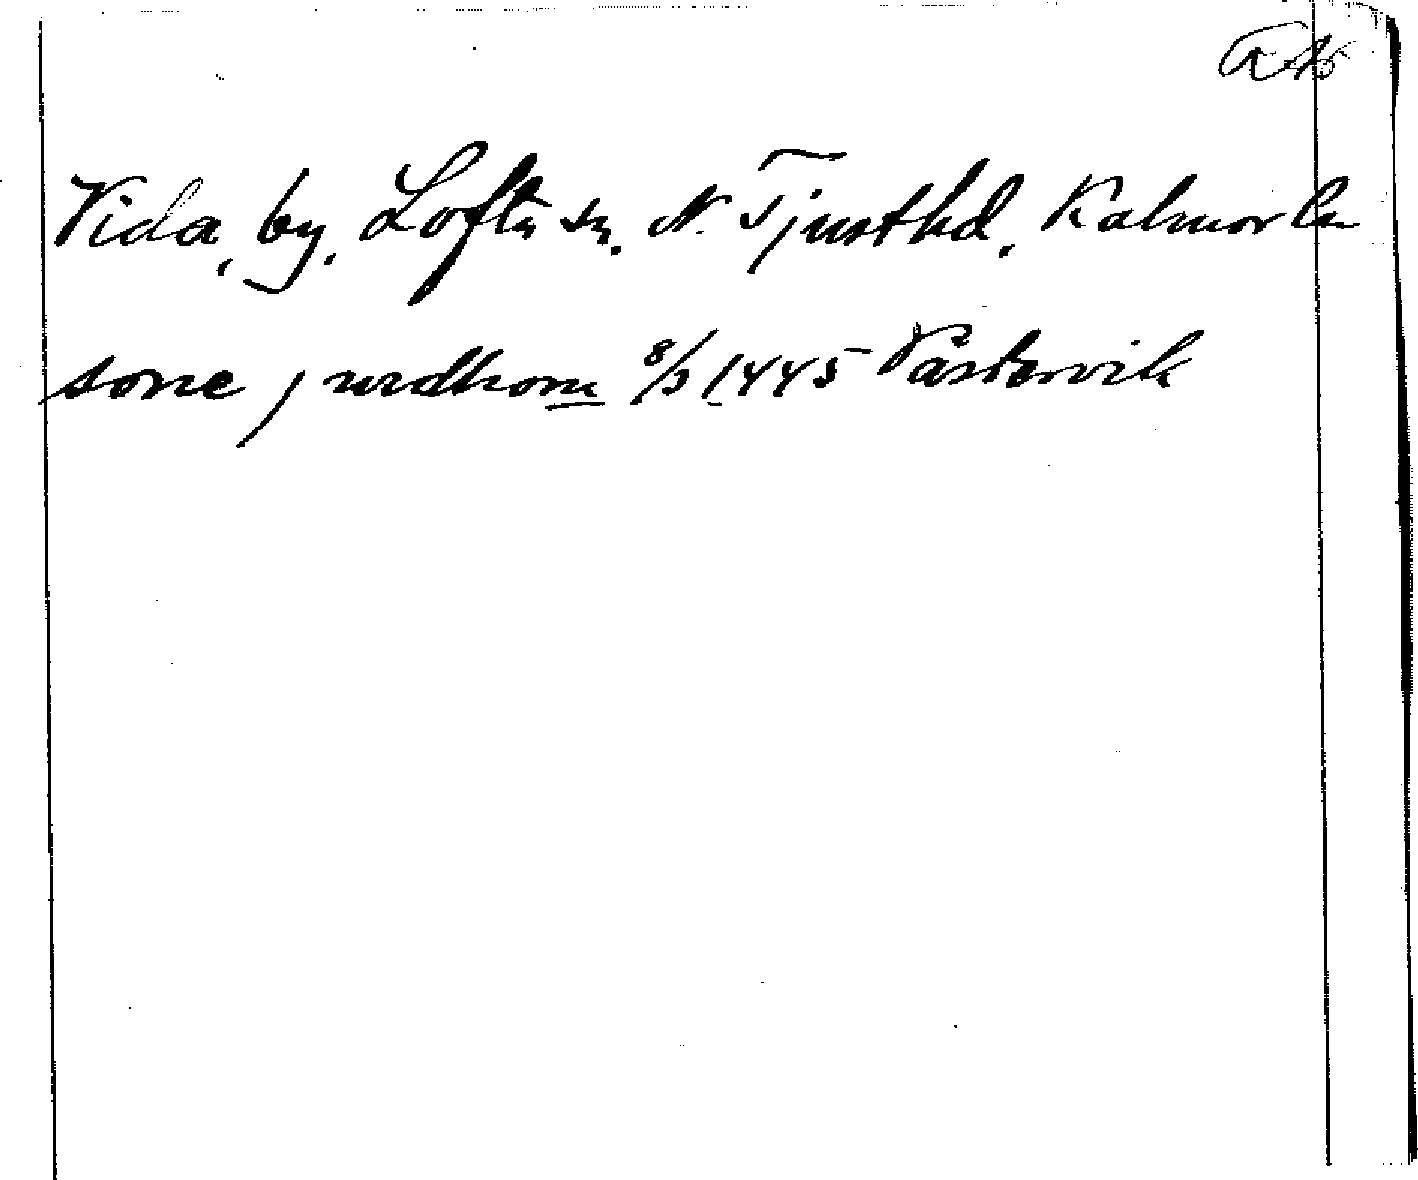 Vida, by. Lofta sn. N. Tjusthd. Kalmar län
sone j urdhom 8/3 1445 Västervik